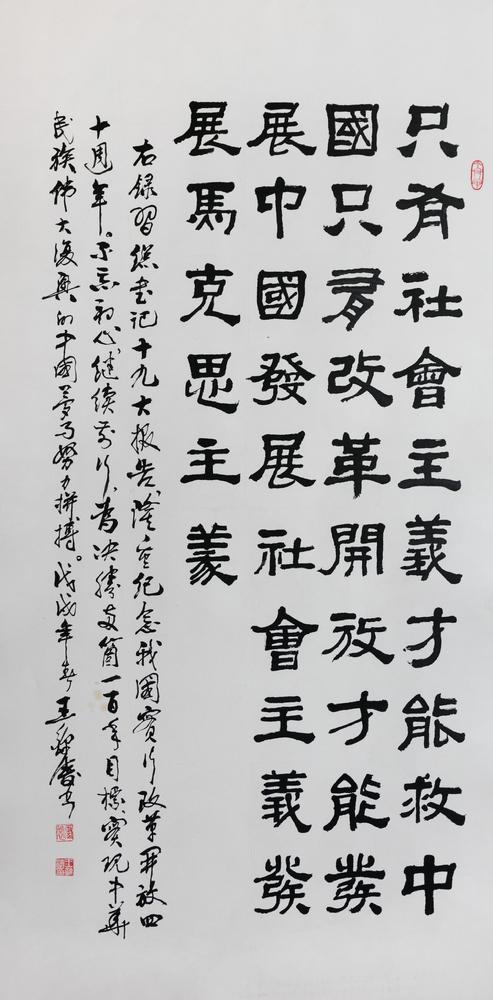 只有社會主義才能救中
國只有改革開放才能發
展中國發展社會主義發
展馬克思主義
右錄習總書记十九大报告隆重纪念我國實行改革開放四
十週年。不忘初心继续前行,為决勝両箇一百年目標實現中華
民族偉大復興的中國夢而努力拼搏。戊戌年春王書